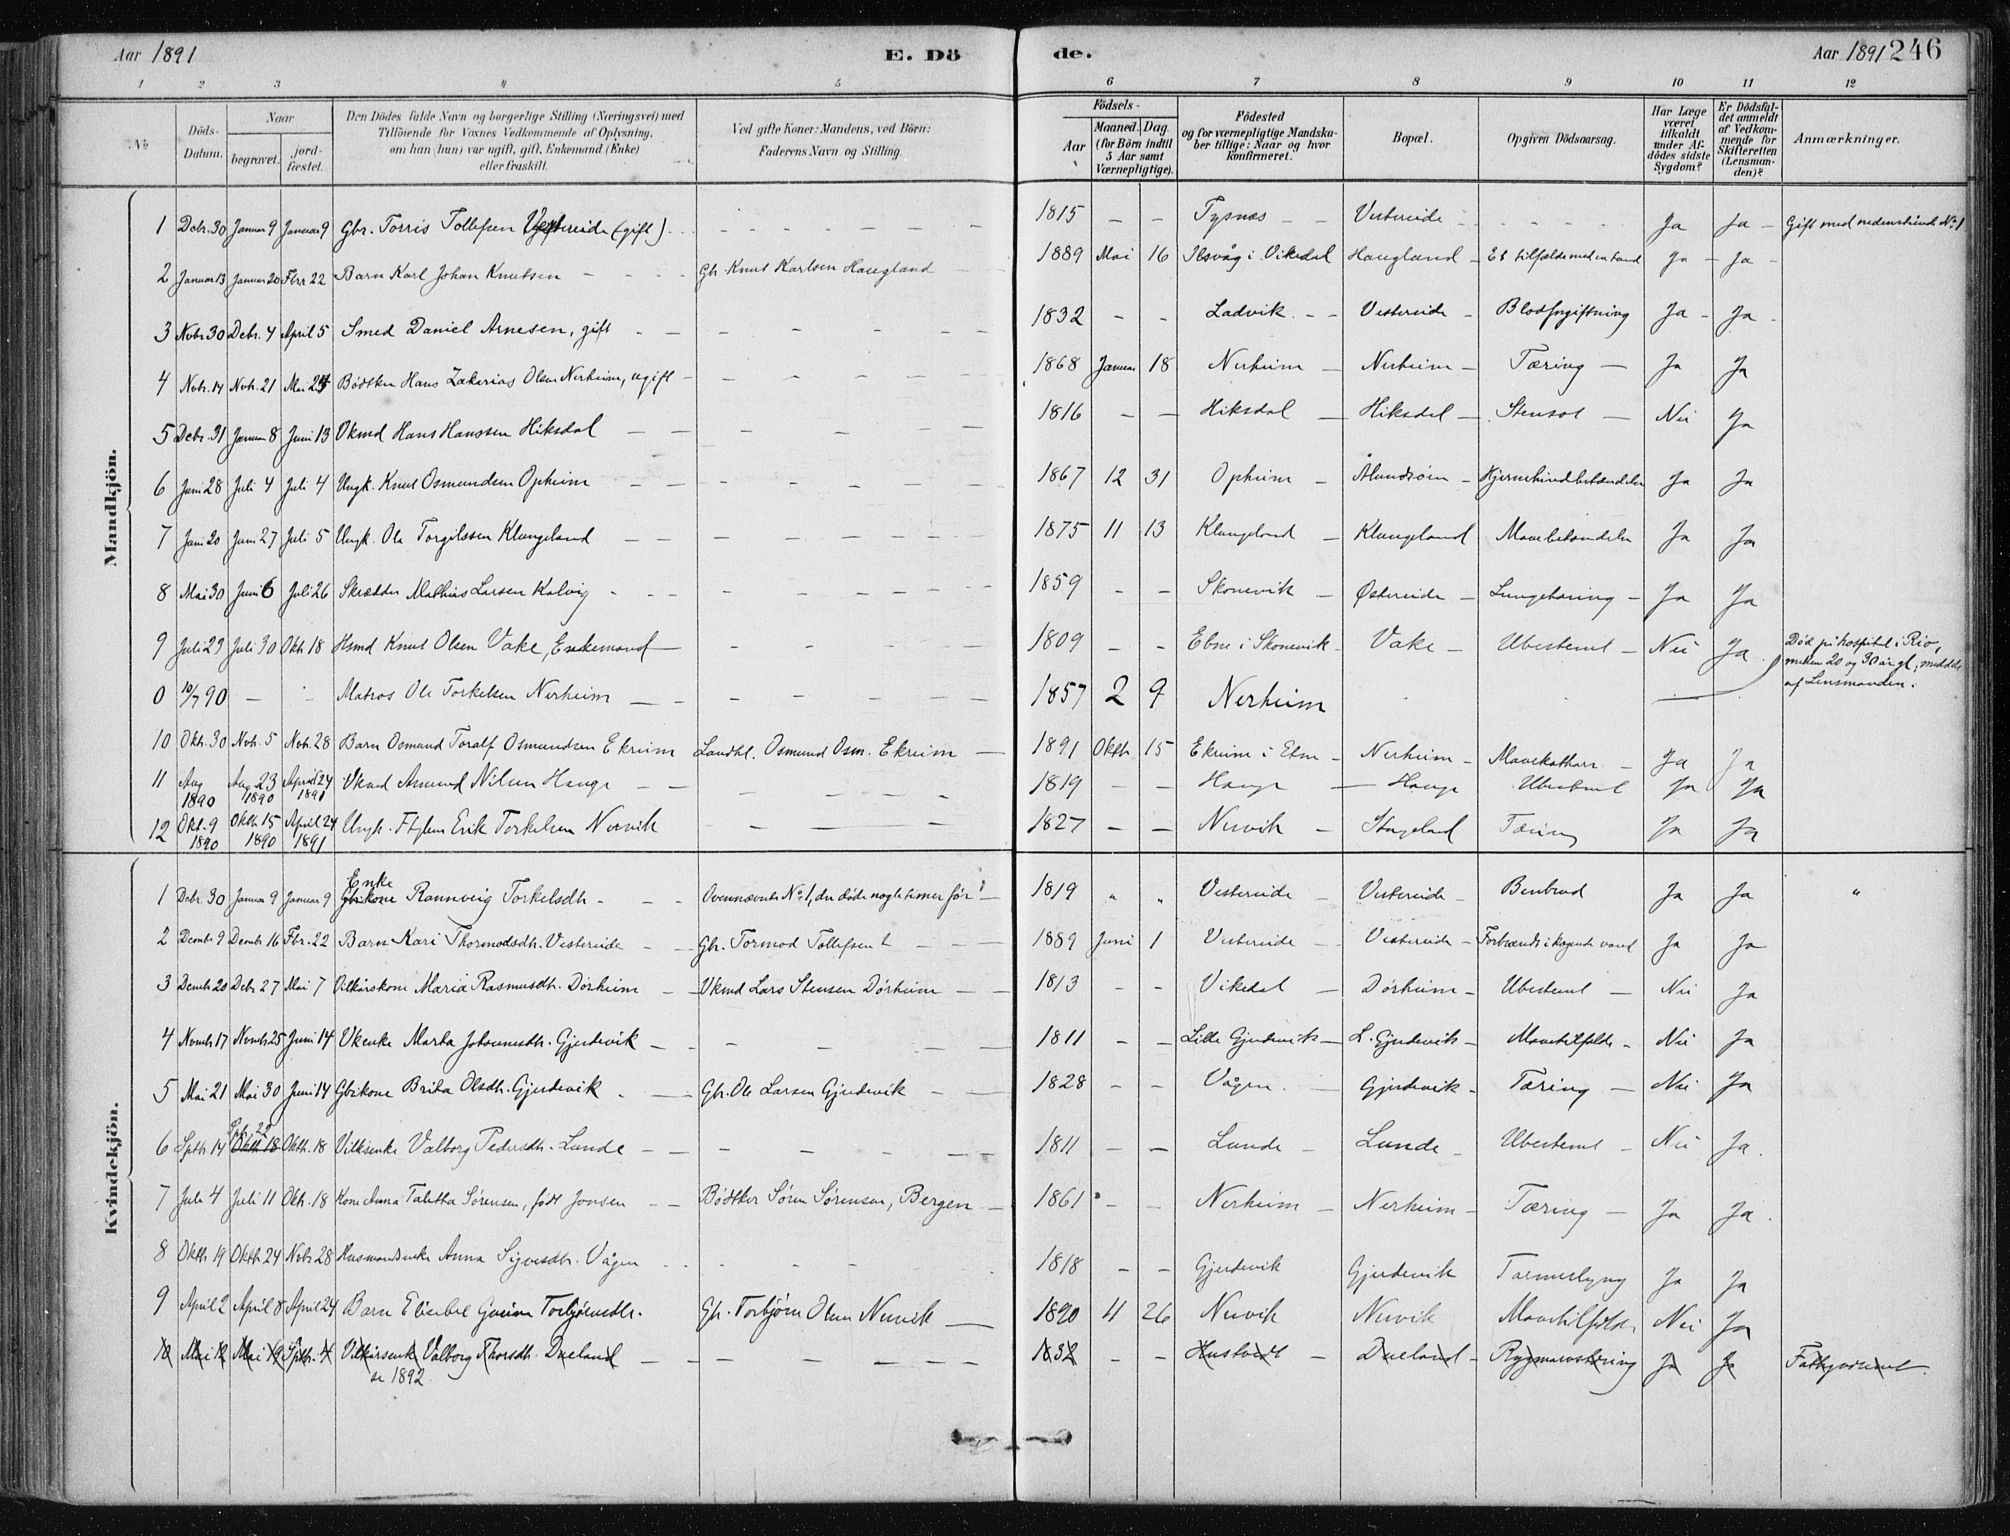 Aar 1891 E. Dö de. Aar 1891 246
1 2 3 4 5 6 7 8 9 10 11 12
№
Döds-Datum.
Naar begravet. jordfæstet.
Den Dödes fulde Navn og borgerlige Stilling (Næringsvei) med Tilföiende for Voxnes Vedkommende af Oplysning, om han (hun) var ugift, gift, Enkemand (Enke) eller fraskilt.
Ved gifte Koner: Mandens, ved Börn: Faderens Navn og Stilling.
Födsels-
Aar Maaned. Dag. (for Börn indtil 5 Aar samt Værnepligtige).
Födested og for værnepligtige Mandskaber tillige: Naar og hvor konfirmeret.
Bopæl.
Opgiven Dödsaarsag.
Har Læge været tilkaldt under Afdödes sidste Sygdom?
Er Dödsfaldet anmeldt af Vedkommende for Skifteretten (Lensmanden)?
Anmærkninger.
Mandkjön.
1 Debr. 30 Januar 9 Januar 9 Gbr. Torris Tollefsen Vestereide (gift) 1815 – – Tysnæs Vestereide Ja Ja Gift med nedenstående No 1
2 Januar 13 Januar 20 Febr 22 Barn Karl Johan Knutsen Gbr. Knut Karlsen Haugland 1889 Mai 16 Ilsvåg i Vikedal Haugland Et tilfælde med en tand Ja Ja
3 Novbr 30 Debr. 4 April 5 Smed Daniel Arnesen, gift 1832 – – Ladvik Vestereide Blodforgiftning Ja Ja
4 Novbr. 14 Novbr. 21 Mai 24 Bødtker Hans Zakarias Olsen Nerheim, ugift 1868 Januar 18 Nerheim Nerheim Tæring Ja Ja
5 Debr. 31 Januar 8 Juni 13 Vkmd Hans Hanssen Hiksdal 1816 – – Hiksdal Hiksdal Stensot Nei Ja
6 Juni 28 Juli 4 Juli 4 Ungk. Knut Osmundsen Opheim 1867 12 31 Opheim Ålundsøen Hjernehindebetændelse Ja Ja
7 Juni 20 Juni 27 Juli 5 Ungk. Ola Torgilssen Klungeland 1875 11 13 Klungeland Klungeland Mavebetændelse Ja Ja
8 Mai 30 Juni 6 Juli 26 Skrædder Mathias Larsen Kalvig 1859 – – Skonevik Østereide Lungetæring Ja Ja
9 Juli 23 Juli 30 Okt. 18 Hsmd Knut Olsen Vake, Enkemand 1809 – – Ebne i Skonevik Vake Ubestemt Nei Ja
0 10/7 90 – Matros Ole Torkelsen Nerheim 1857 2 9 Nerheim Død på hospital i Rio, mellem 20 og 30 år gl., meddelt af Lensmanden.
10 Okt. 30 Nvbr. 5 Nvbr. 28 Barn Osmund Toralf Osmundsen Ekreim Landhl. Osmund Osm. Ekreim 1891 Oktb 15 Ekreim i Etne Nerheim Mavekatharr Ja Ja
11 Aug 1890 Aug 23 1890 April 24 1891 Vkmd Amund Nilsen Hauge 1819 – Hauge Hauge Ubestemt Ja Ja
12 Okt. 9 1890 Oktb 15 1890 April 24 1891 Ungk. Erik Torkelsen Nervik 1827 – – Nervik Stageland Tæring Ja Ja
Kvindekjön.
1 Debr. 30 Januar 9 Januar 9 Enke Gbrkone Rannveig Torkelsdtr. Ovennævnte No 1, der døde nogle timer før 1819 " " Vestereide Vestereide Benbrud Ja Ja "
2 Decmbr 9 Decmbr 16 Fbr. 22 Barn Kari Thormodsdtr. Vestereide Gbr. Tormod Tollefsen 1889 Juni 1 Vestereide Vestereide Forbrændt i kogende vand Ja Ja
3 Decmbr 20 Debr 27 Mai 7 Vilkårskone Maria Rasmusdtr. Dörheim Vkmd Lars Stensen Dörheim 1813 – – Vikedal Dörheim Ubestemt Nei Ja
4 Novmbr 17 Novmbr 25 Juni 14 Vkenke Marta Johannesdtr. Gjerdevik 1811 – – Lille Gjerdevik L. Gjerdevik Mavetilfælde Nei Ja
5 Mai 21 Mai 30 Juni 14 Gbrkone Brita Olsdtr. Gjerdevik Gbr. Ole Larsen Gjerdevik 1828 – – Vågen Gjerdevik Tæring Nei Ja
6 Sptbr 14 Sptbr 22 Oktb 18 Oktb. 18 Vilksenke Valborg Pedersdtr. Lunde 1811 – – Lunde Lunde Ubestemt Nei Ja
7 Juli 4 Juli 11 Okt. 18 Kone Anna Talitha Sørensen, født Jonsen Bødtker Søren Sørensen, Bergen 1861 – – Nerheim Nerheim Tæring Ja Ja
8 Oktb. 19 Oktb. 24 Nvbr 28 Husmandsenke Anna Sigvesdtr. Vågen 1818 – – Gjerdevik Gjerdevik Tarmerslyng Ja Ja
9 April 2 April 8 April 24 Barn Elisabet Gurina Torbjörnsdtr. Gbr. Torbjørn Olsen Nervik 1890 4 26 Nervik Nervik Mavetilfælde Nei Ja
10 Mai 12 Mai 19 Sptbr. 4 Vilkårsenke Valborg Thorsdtr. Dueland 1832 – – Hustvedt Dueland Rygmarvstæring Ja Ja Fattigunderst.
se 1892.